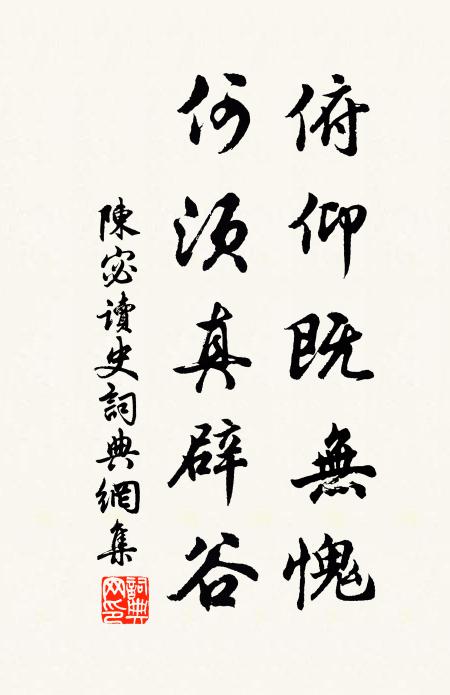 俯仰既無愧
何須真辟谷
陳宓讀史詞典網集
詞典網印